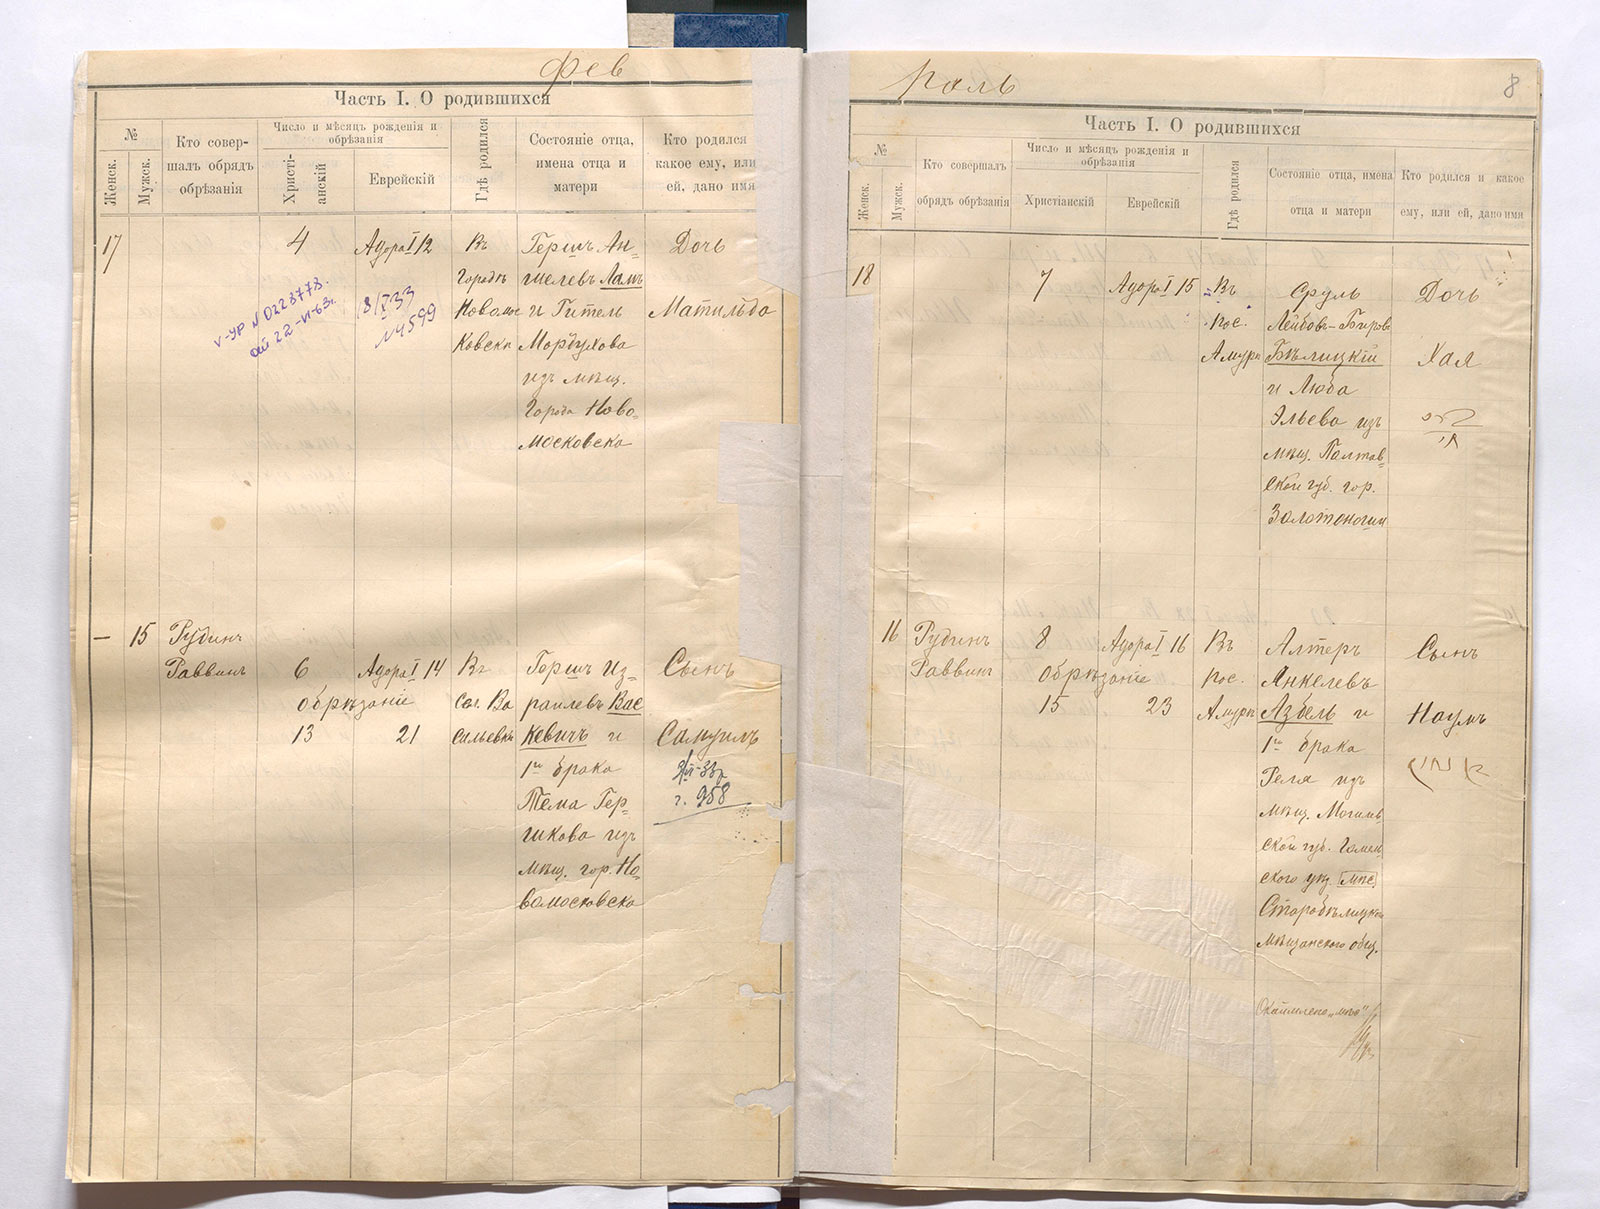 Фев
Часть I. О родившихся
№
Женск.
Мужск.
Кто совер-
шалъ обрядъ
обрѣзанія
Число и мѣсяцъ рожденія и
обрѣзанія
Христі-
анскій
Еврейскій
Гдѣ родился
Состояніе отца,
имена отца и
матери
Кто родился
какое ему, или
ей, дано имя
17
4
Адора I 12
Въ
Городѣ
Новомос
Ковскѣ
Гершъ Ан-
шелевъ Ламъ
и Гитель
Мордухова
изъ мѣщ.
Города Ново-
московска
Дочь
Матильда
V-УР N 0223778.
22-VI-63г.
8/I 33
N 4599
15
Рудинъ
Раввинъ
6
Адора I 14
обрѣзаніе
13
21
Въ
сел. Ва
сильевкѣ
Гершъ Из-
раилевъ Вас
Кевичъ и
1го брака
Тема Гер-
шкова изъ
мѣщ. гор. Но-
вомосковска
Сынъ
Самуилъ
г. 958
раль
8
Часть I. О родившихся
№
Женск.
Мужск.
Кто совершалъ
обрядъ обрѣзанія
Число и мѣсяцъ рожденія и
обрѣзанія
Христіанскій
Еврейскій
Гдѣ родился
Состояніе отца, имена
отца и матери
Кто родился и какое
ему, или ей, дано имя
18
7
Адора I 15
Въ
пос.
Амурѣ
Сруль
Лейбовъ-Беровъ
Бѣлицкій
и Люба
Эльева изъ
мѣщ. Полтав-
ской губ. гор.
Золотоноши
Дочь
Хая
16
Рудинъ
Раввинъ
8
Адора I 16
обрѣзаніе
15
23
Въ
пос.
Амурѣ
Алтеръ
Янкелевъ
Азбель и
1го брака
Геля изъ
мѣщ. Могилев
ской губ. Гомел
ского уѣз. мѣс
Старобѣлицкаго
мѣщанского общ.
Окаймлено "мѣс"
Сынъ
Наумъ